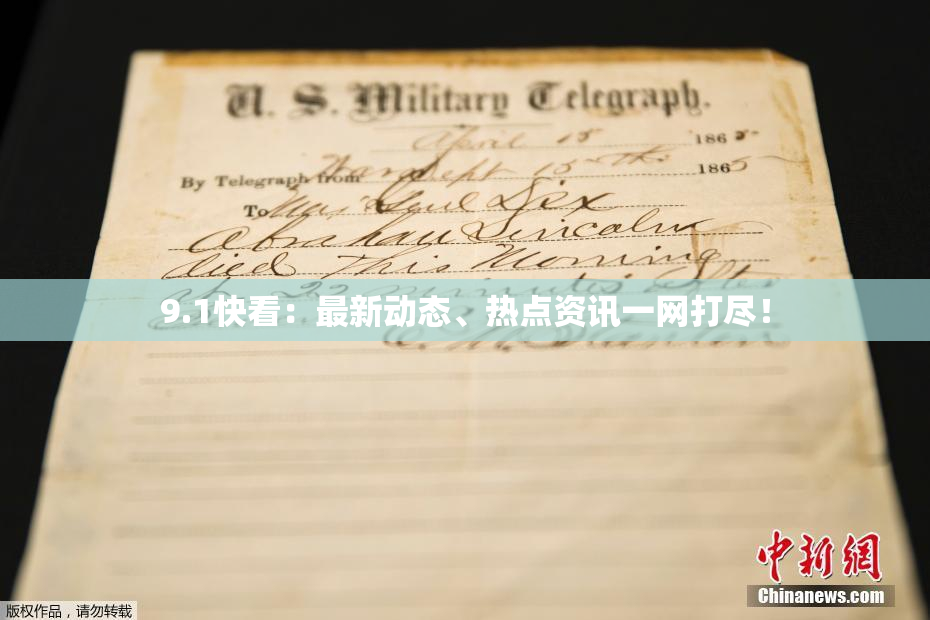 U. S. Military Telegraph.
April 15 1865
By Telegraph from War Dept 15th 1865
To Maj Genl Dix
Abraham Lincoln
died This Morning
at 22 minutes after
9.1快看：最新动态、热点资讯一网打尽！
E. M. Stanton
中新网
Chinanews.com
版权作品，请勿转载